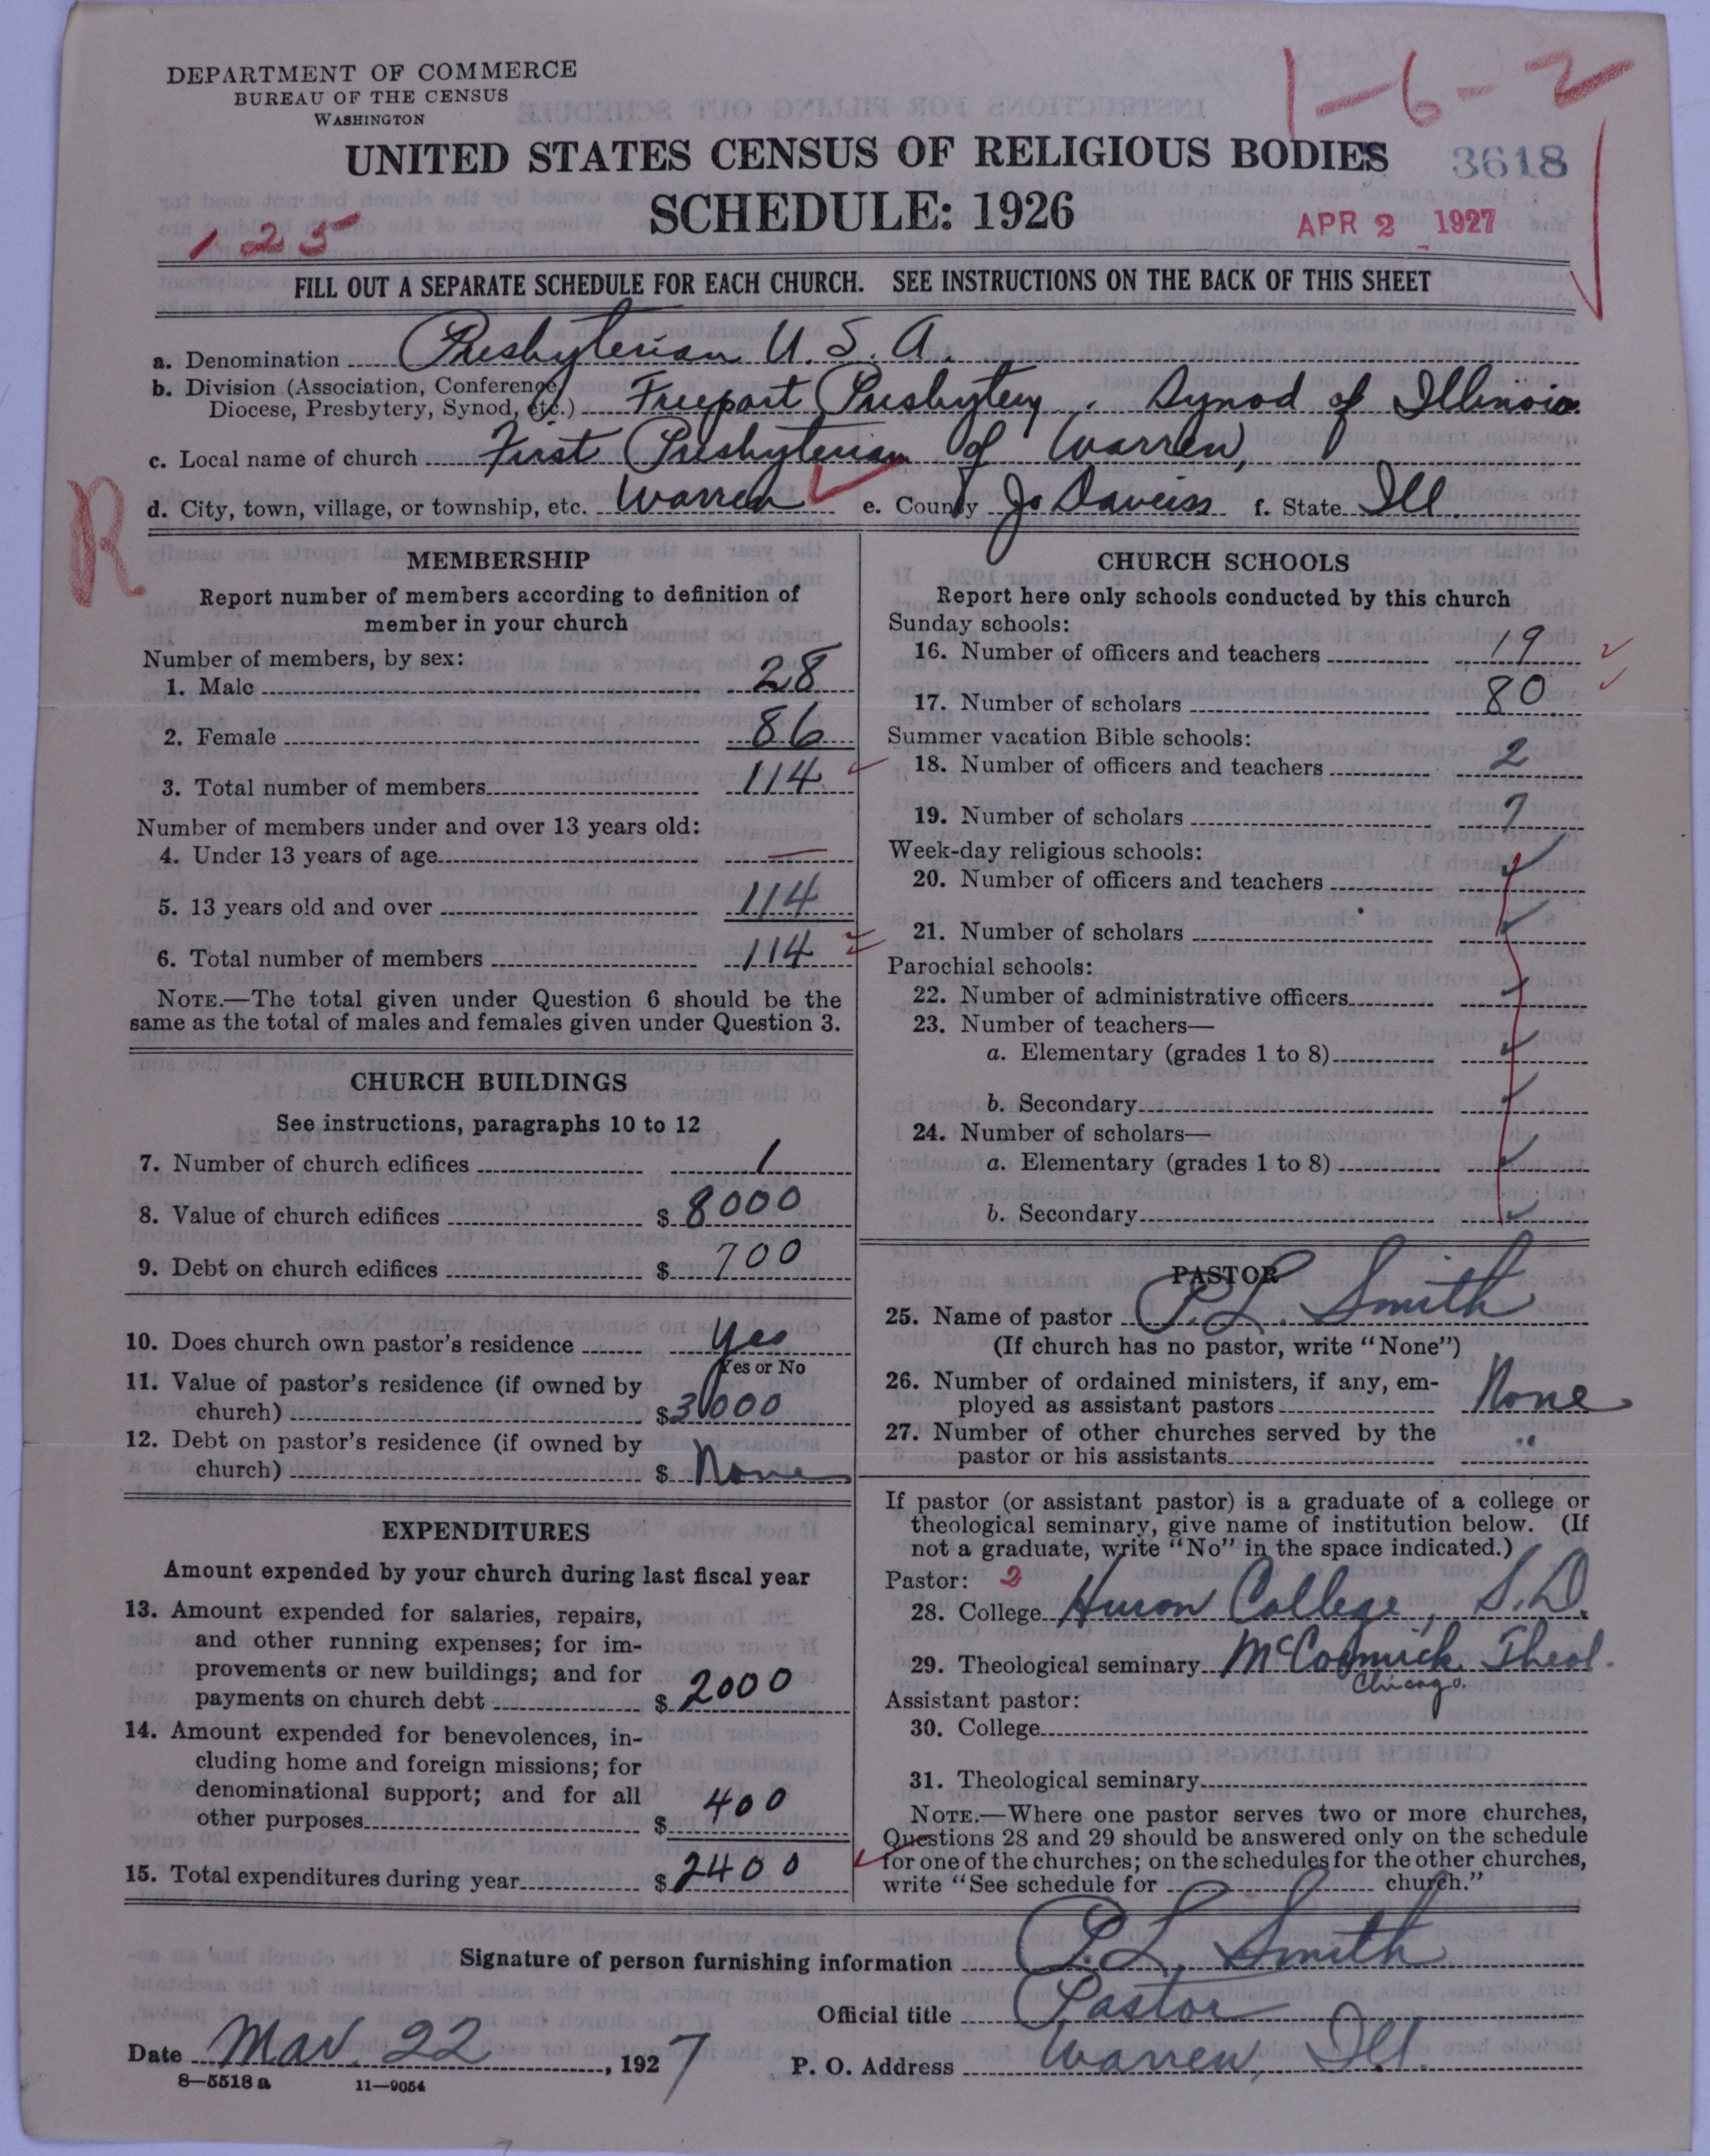 DEPARTMENT OF COMMERCE
BUREAU OF THE CENSUS
WASHINGTON
1-6-2
UNITED STATES CENSUS OF RELIGIOUS BODIES
3618
SCHEDULE: 1926
APR 2 1927
125
FILL OUT A SEPARATE SCHEDULE FOR EACH CHURCH. SEE INSTRUCTIONS ON THE BACK OF THIS SHEET
a. Denomination Presbyterian U.S.A.
b. Division (Association, Conference,
Diocese, Presbytery, Synod, etc.) Freeport Presbytery, Synod of Illinois
c. Local name of church First Presbyterian of Warren,
d. City, town, village, or township, etc. Warren e. County Jo Daveiss f. State Ill.
R
MEMBERSHIP
Report number of members according to definition of
member in your church
Number of members, by sex:
1. Male 28
2. Female 86
3. Total number of members 114
Number of members under and over 13 years old:
4. Under 13 years of age —
5. 13 years old and over 114
6. Total number of members 114
NOTE.—The total given under Question 6 should be the
same as the total of males and females given under Question 3.
CHURCH BUILDINGS
See instructions, paragraphs 10 to 12
7. Number of church edifices 1
8. Value of church edifices $ 8000
9. Debt on church edifices $ 700
10. Does church own pastor's residence Yes
Yes or No
11. Value of pastor's residence (if owned by
church) $ 3000
12. Debt on pastor's residence (if owned by
church) $ None
EXPENDITURES
Amount expended by your church during last fiscal year
13. Amount expended for salaries, repairs,
and other running expenses; for im-
provements or new buildings; and for
payments on church debt $ 2000
14. Amount expended for benevolences, in-
cluding home and foreign missions; for
denominational support; and for all
other purposes $ 400
15. Total expenditures during year $ 2400
CHURCH SCHOOLS
Report here only schools conducted by this church
Sunday schools:
16. Number of officers and teachers 19
17. Number of scholars 80
Summer vacation Bible schools:
18. Number of officers and teachers 2
19. Number of scholars 7
Week-day religious schools:
20. Number of officers and teachers
21. Number of scholars
Parochial schools:
22. Number of administrative officers
23. Number of teachers—
a. Elementary (grades 1 to 8)
b. Secondary
24. Number of scholars—
a. Elementary (grades 1 to 8)
b. Secondary
PASTOR
25. Name of pastor P.L. Smith
(If church has no pastor, write "None")
26. Number of ordained ministers, if any, em-
ployed as assistant pastors None
27. Number of other churches served by the
pastor or his assistants "
If pastor (or assistant pastor) is a graduate of a college or
theological seminary, give name of institution below. (If
not a graduate, write "No" in the space indicated.)
Pastor: 2
28. College Huron College, S.D.
29. Theological seminary McCormick Theol.
Chicago.
Assistant pastor:
30. College
31. Theological seminary
NOTE.—Where one pastor serves two or more churches,
Questions 28 and 29 should be answered only on the schedule
for one of the churches; on the schedules for the other churches,
write "See schedule for church."
Signature of person furnishing information P.L. Smith
Official title Pastor
Date Mar. 22, 1927 P. O. Address Warren, Ill.
8—5518 a 11—9054